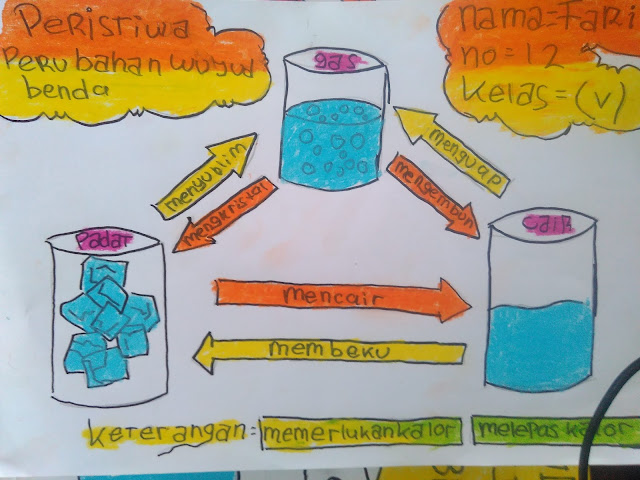 Peristiwa
Perubahan wujud
benda
nama=Fari
no=12
Kelas=(V)
gas
menyublim
mengkristal
menguap
mengembun
Padat
cair
mencair
membeku
keterangan= memerlukankalor melepaskalor